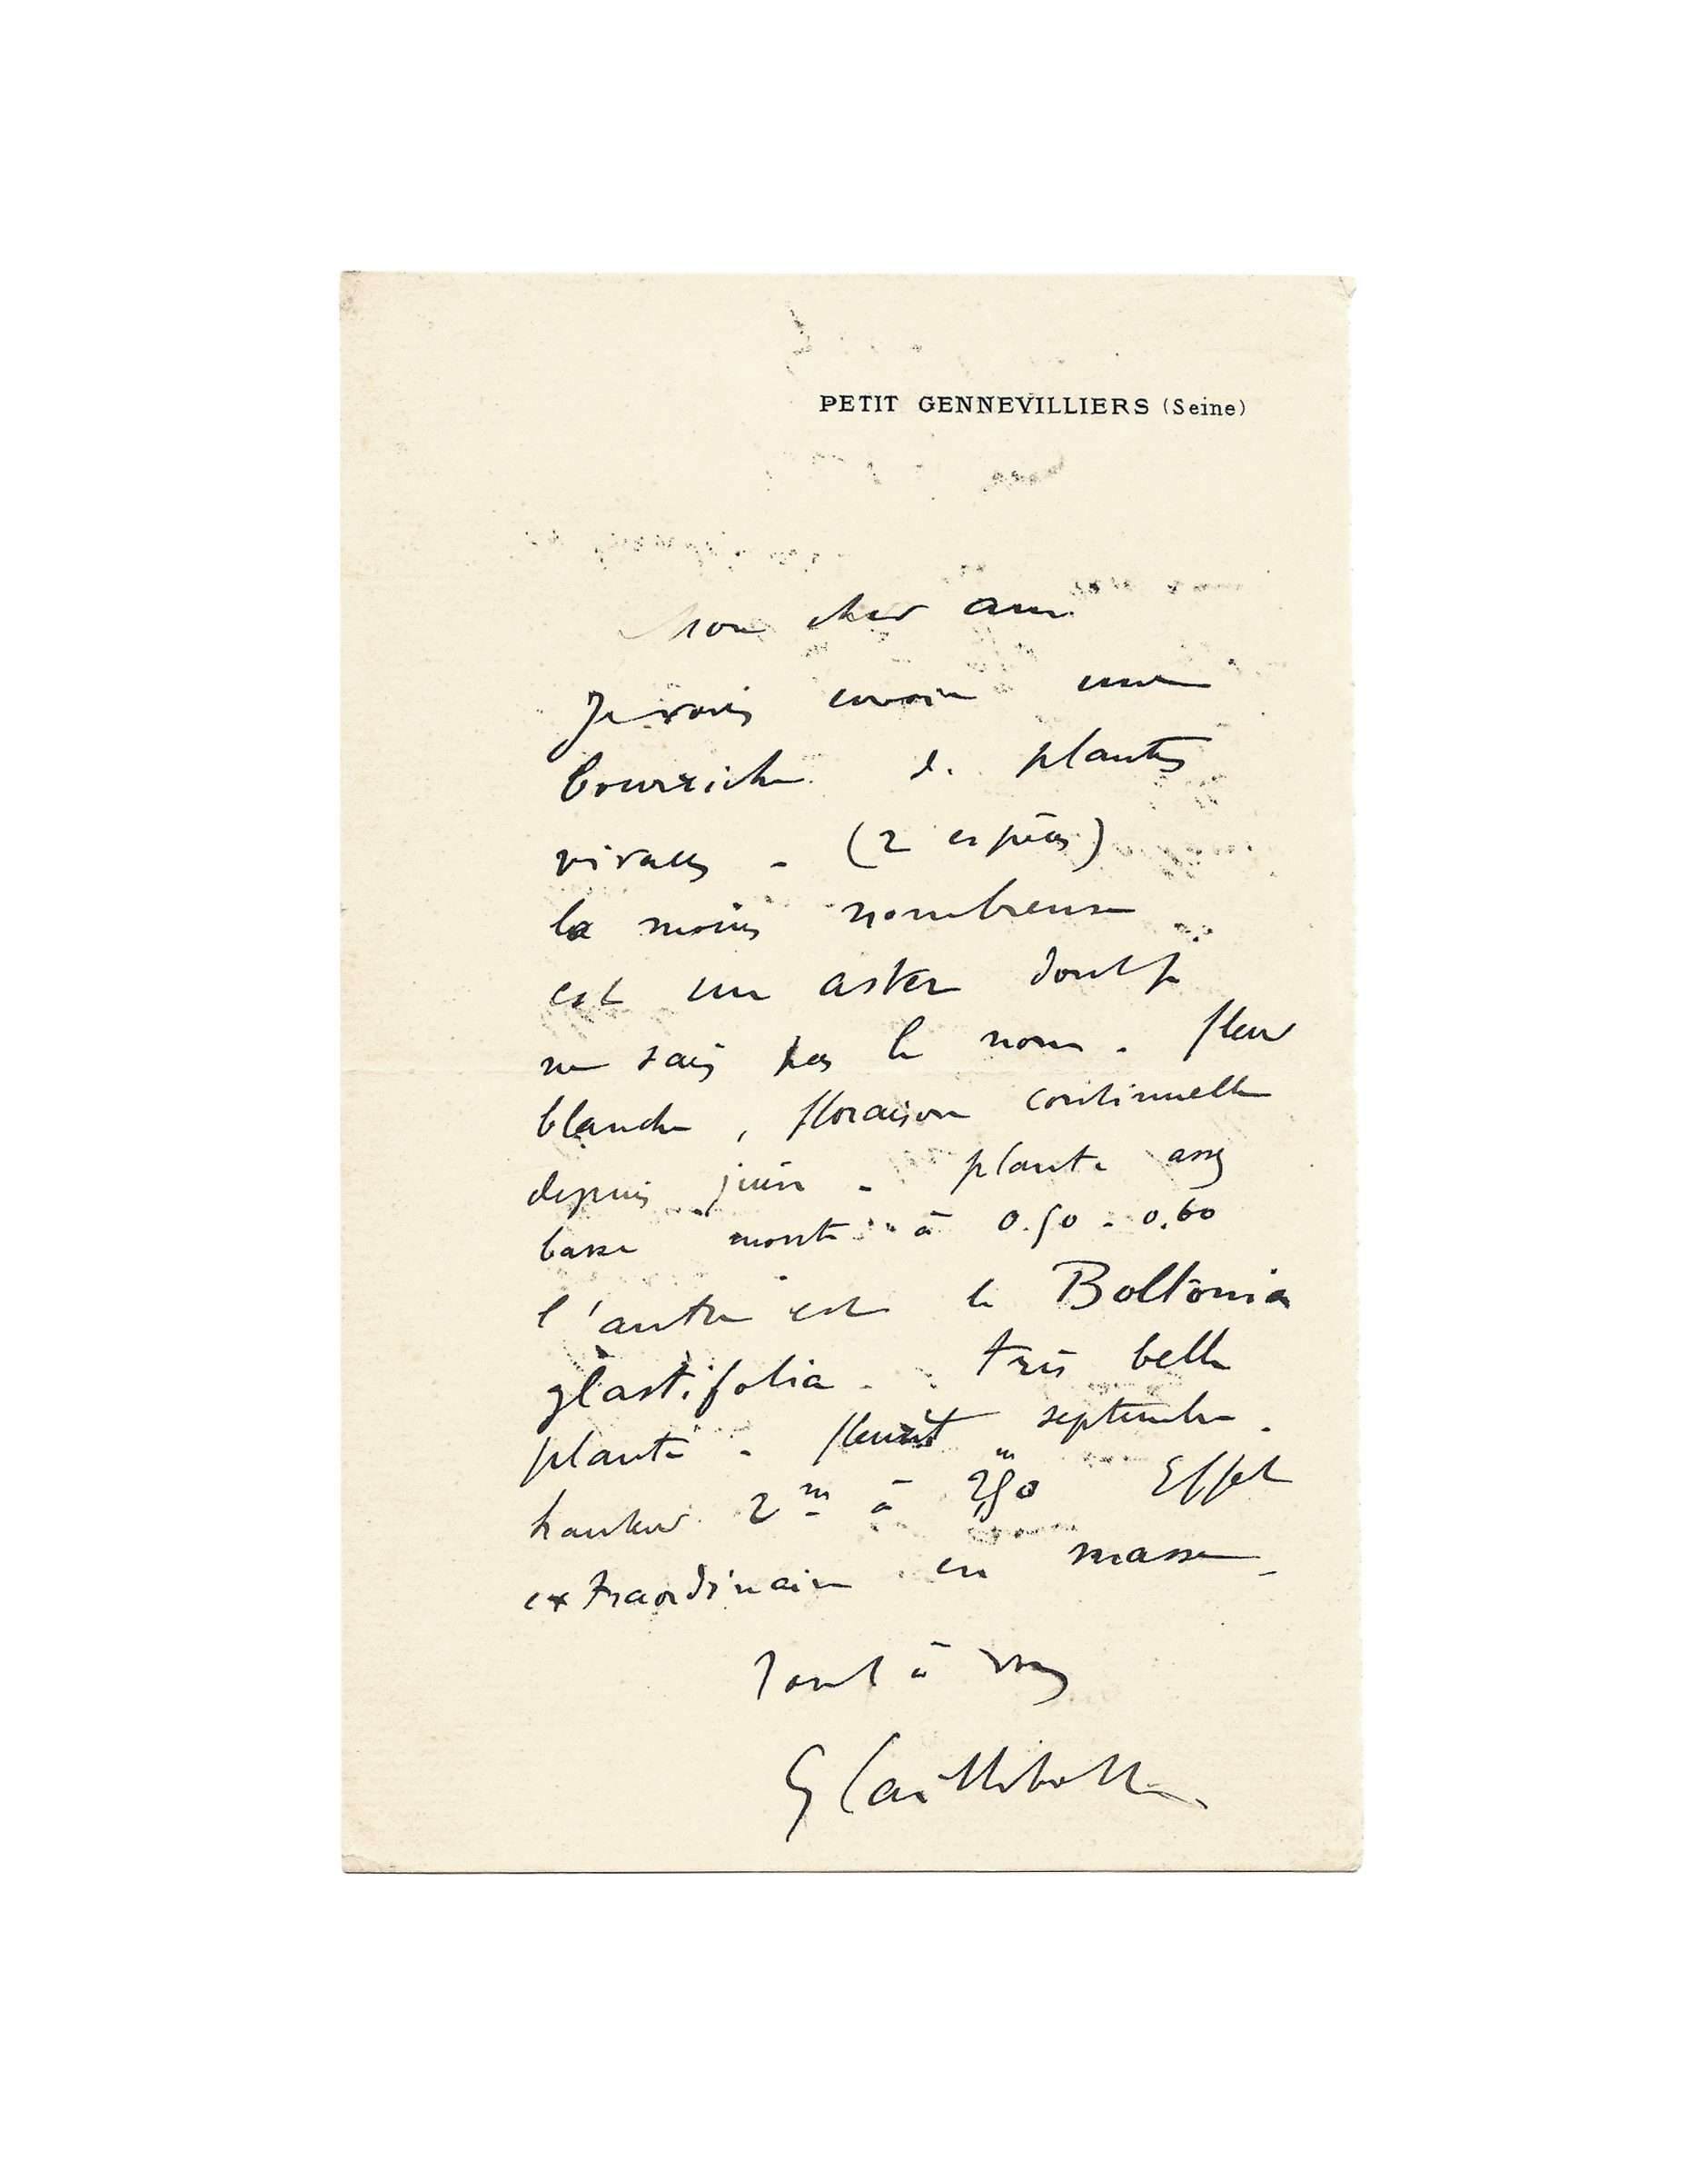 PETIT GENNEVILLIERS (Seine)
Mon cher ami
Je vais envoie une
bourriche de plantes
vivaces - (2 espèces)
la moins nombreuse
est un aster dont je
ne sais pas le nom - fleur
blanche, floraison continuelle
depuis juin - plante assez
basse monte à 0.50 - 0.60
l'autre est le Boltonia
glastifolia - très belle
plante - fleurit septembre.
hauteur 2m à 2m,50 Effet
extraordinaire en masse -
Tout à vous
G Caillebotte